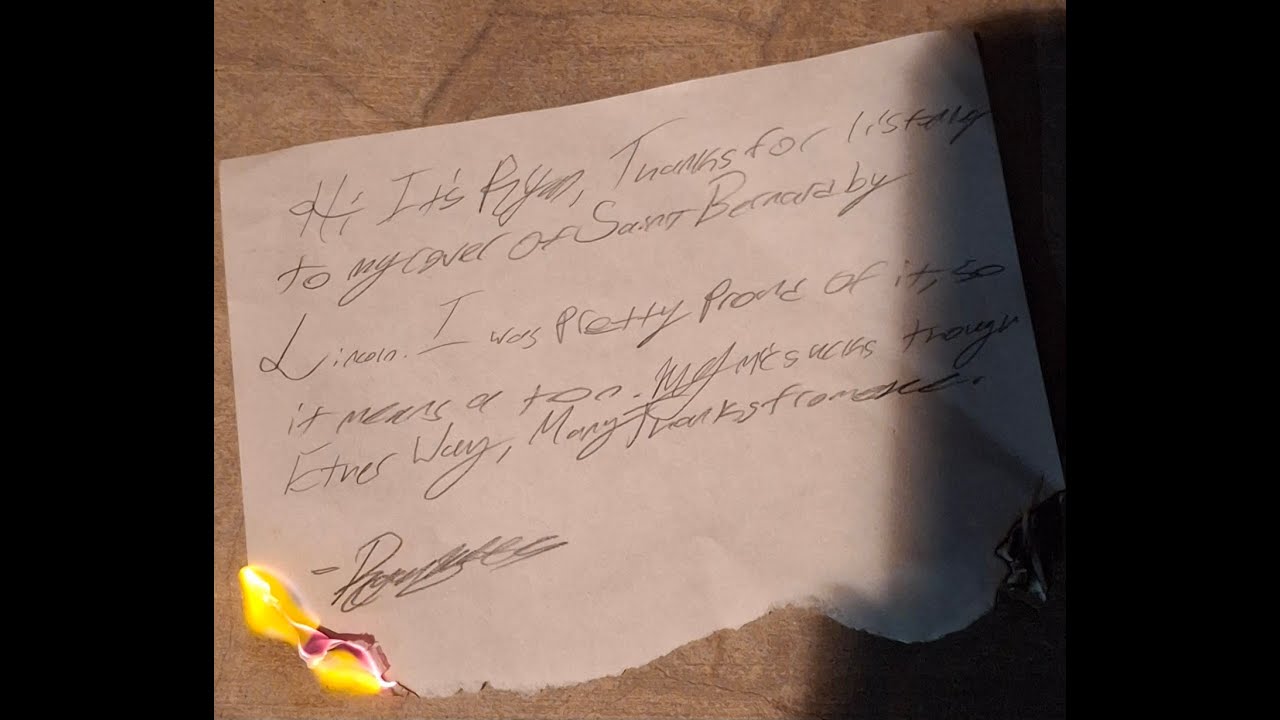 Hi, It's Ryan, Thanks for listening
to my cover of Saint Bernard by
Lincoln. I was Pretty Proud of it, so
it means a ton. My mic sucks though
Ether Way, Many Thanks from me.
- Ryan